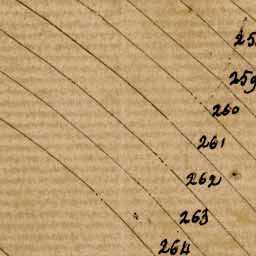 259
260
261
262
263
264